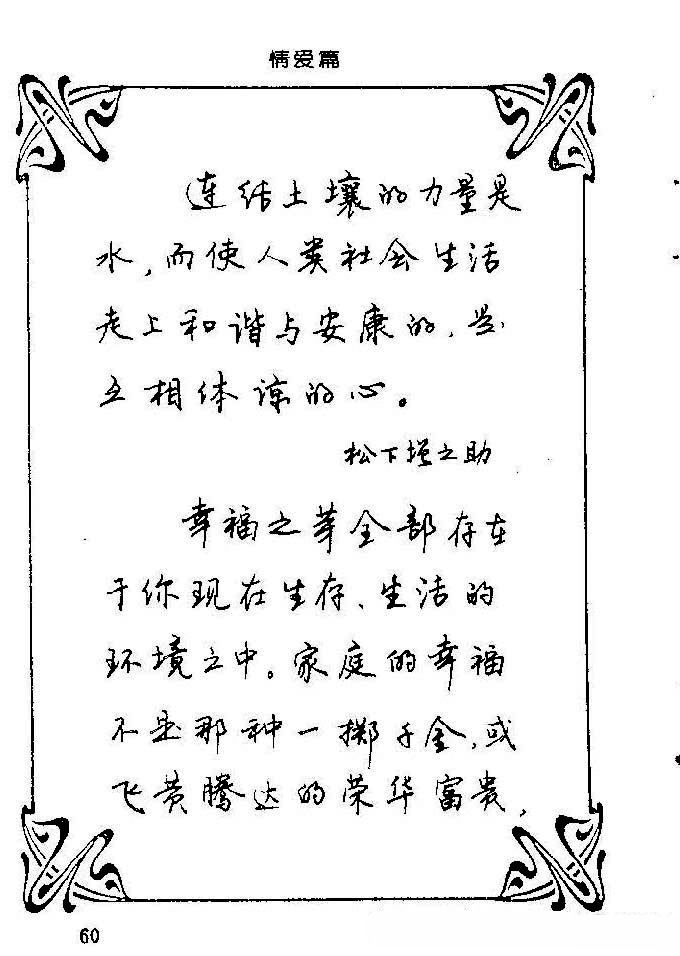 情爱篇
连结土壤的力量是
水,而使人类社会生活
走上和谐与安康的,是
互相体谅的心。
松下
之助
幸福之芽全部存在
于你现在生存、生活的
环境之中。家庭的幸福
不是那种一掷千金,或
飞黄腾达的荣华富贵,
60